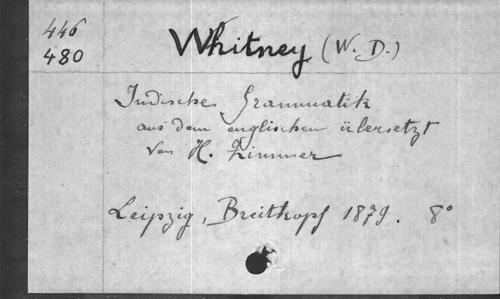 446
480
Whitney (W. D.)
Indische Grammatik
aus dem englischen übersetzt
von H. Zimmer
Leipzig, Breitkopf 1879. 8°